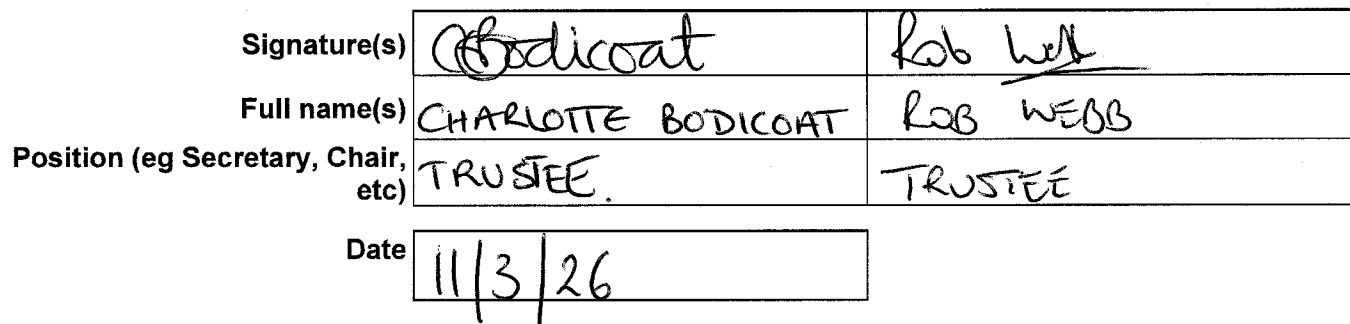 Signature(s) CBodicoat Rob Webb
Full name(s) CHARLOTTE BODICOAT ROB WEBB
Position (eg Secretary, Chair,
etc) TRUSTEE. TRUSTEE
Date 11/3/26